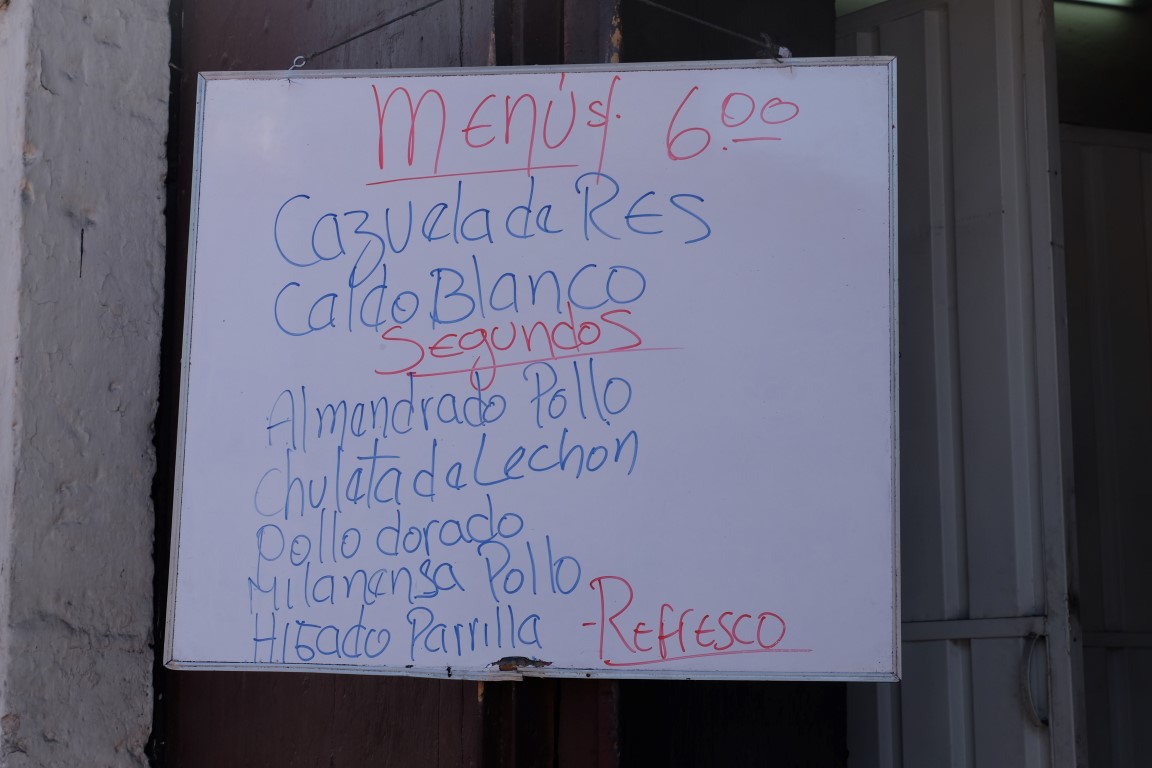 Menú s/. 6.00
Cazuela de RES
Caldo Blanco
Segundos
Almendrado Pollo
Chuleta de Lechon
Pollo dorado
Milanensa Pollo
Higado Parrilla
-Refresco